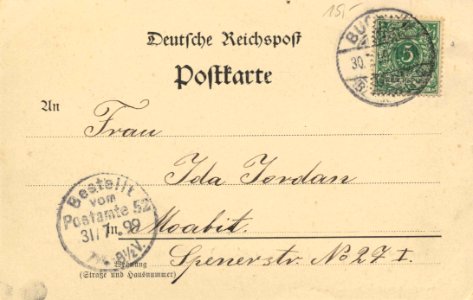 15,-
Deutsche Reichspost
Postkarte
5
30.
An
Frau
Ida Jordan
Bestellt
vom
Postamte 52
31/7 99
8½V.
In
Moabit.
Spenerstr. No 27 I.
Wohnung
(Straße und Hausnummer)